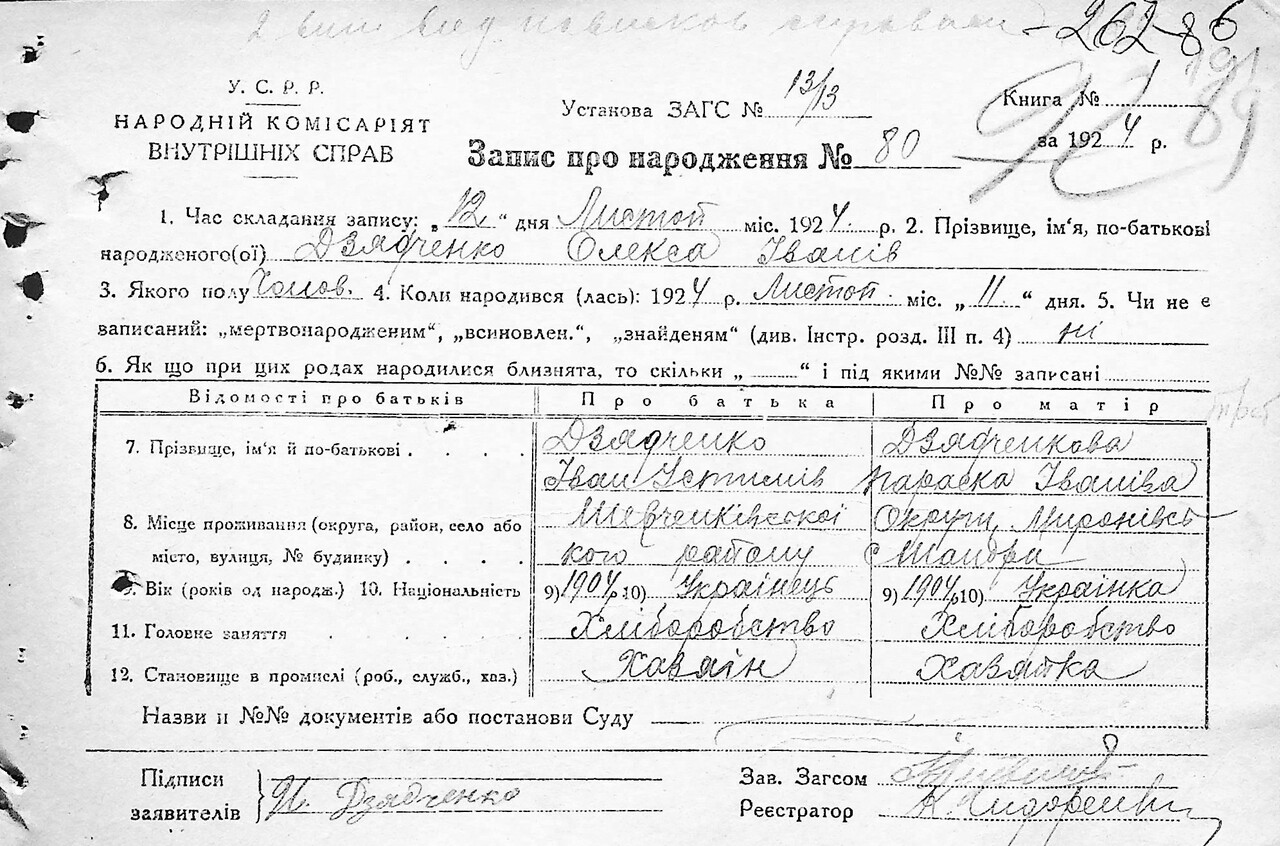 262-86
У. С. Р. Р.
НАРОДНІЙ КОМІСАРІЯТ
ВНУТРІШНІХ СПРАВ
Установа ЗАГС № 13/13
Книга № 1
за 1924 р.
Запис про народження № 80
1. Час складання запису: „12“ дня Листоп міс. 1924. р. 2. Прізвище, ім‘я, по-батькові
народженого(ої) Дзядченко Олекса Іванів
3. Якого полу Чолов. 4. Коли народився (лась): 1924 р. Листоп. міс. „11“ дня. 5. Чи не є
записаний: „мертвонародженим“, „всиновлен.“, „знайденям“ (див. Інстр. розд. III п. 4) ні
6. Як що при цих родах народилися близнята, то скільки „ “ і під якими №№ записані
Відомості про батьків Про батька Про матір
7. Прізвище, ім‘я й по-батькові . . . . Дзядченко Дзядченкова
Іван Устимів Параска Іванівна
8. Місце проживання (округа, район, село або Шевченківської Округи, Миронівсь
місто, вулиця, № будинку) . . . . кого району с Шандра
9. Вік (років од народж.) 10. Національність 9) 1904 р. 10) Українець 9) 1904 р. 10) Українка
11. Головне заняття . . . . Хліборобство Хліборобство
12. Становище в промислі (роб., служб., хаз.) Хазяїн Хазяйка
Назви и №№ документів або постанови Суду
Підписи
заявителів
И. Дзядченко
Зав. Загсом
Реєстратор